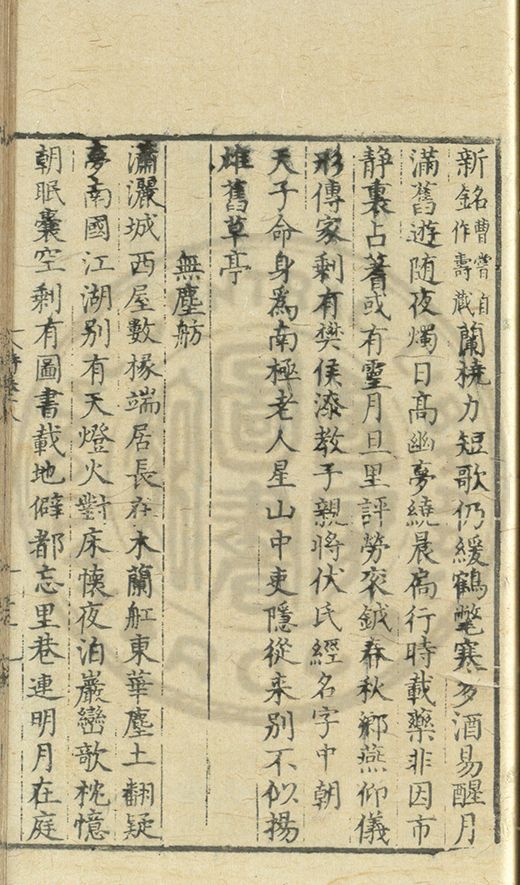 新銘曹嘗自作壽藏蘭橈力短歌仍緩鶴氅寒多酒易醒月
滿舊遊随夜燭日高幽夢繞晨扃行時載藥非因市
静裏占蓍或有靈月旦里評勞衮鉞春秋鄉燕仰儀
形傳家剩有樊侯漆教子親將伏氏經名字中朝
天子命身爲南極老人星山中吏隱從来别不似揚
雄舊草亭
無塵舫
瀟灑城西屋數椽端居長在木蘭舡東華塵土翻疑
夢南國江湖别有天燈火對床懷夜泊巖巒歌枕憶
朝眠囊空剩有圖書載地僻都忘里巷連明月在庭